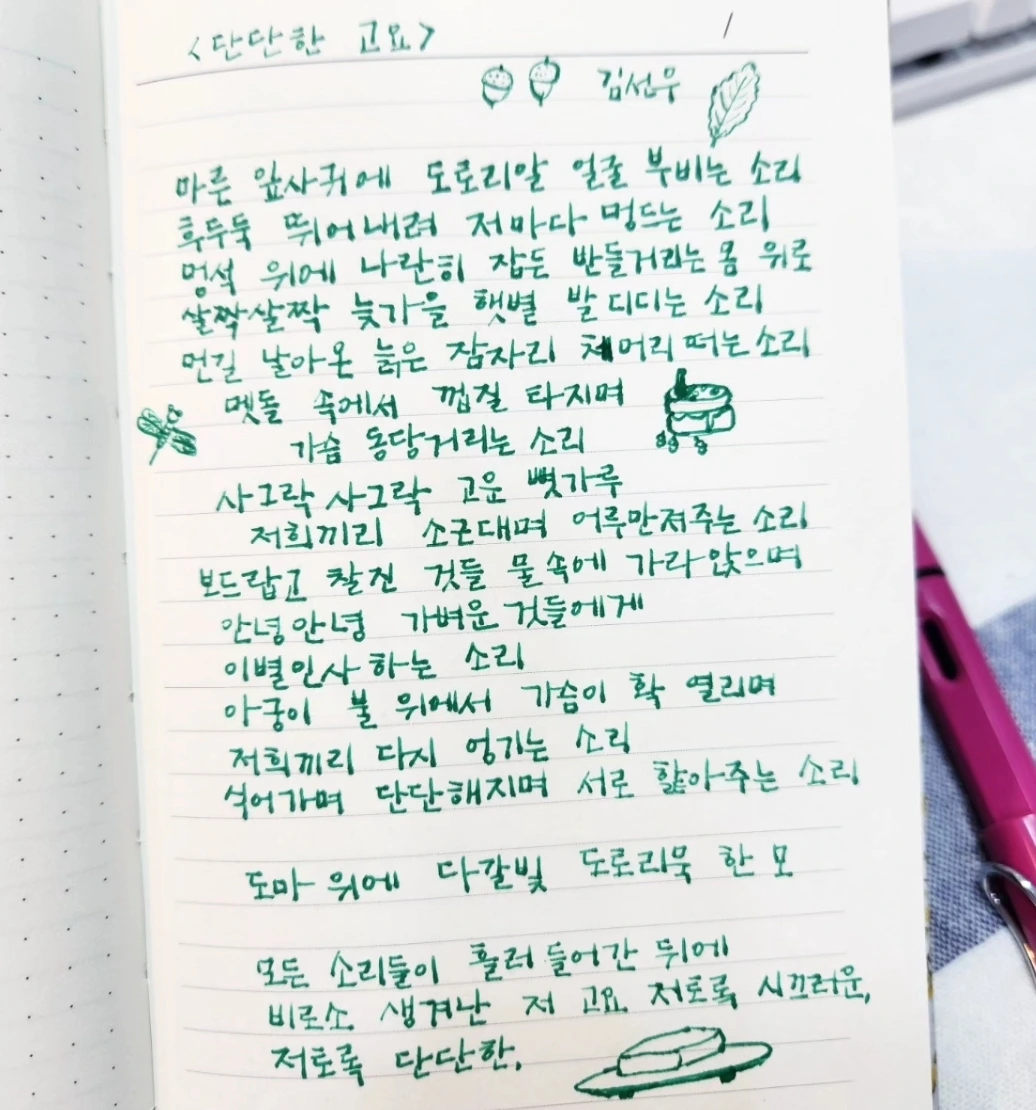 <단단한 고요>
김선우
마른 잎사귀에 도토리알 얼굴 부비는 소리
후두둑 뛰어내려 저마다 멍드는 소리
멍석 위에 나란히 잠든 반들거리는 몸 위로
살짝살짝 늦가을 햇볕 발 디디는 소리
먼길 날아온 늙은 잠자리 체머리 떠는 소리
멧돌 속에서 껍질 타지며
가슴 동당거리는 소리
사그락사그락 고운 뼛가루
저희끼리 소근대며 어루만져주는 소리
보드랍고 찰진 것들 물속에 가라앉으며
안녕안녕 가벼운 것들에게
이별인사 하는 소리
아궁이 불 위에서 가슴이 확 열리며
저희끼리 다시 엉기는 소리
식어가며 단단해지며 서로 핥아주는 소리
도마 위에 다갈빛 도토리묵 한 모
모든 소리들이 흘러 들어간 뒤에
비로소 생겨난 저 고요 저토록 시끄러운,
저토록 단단한,